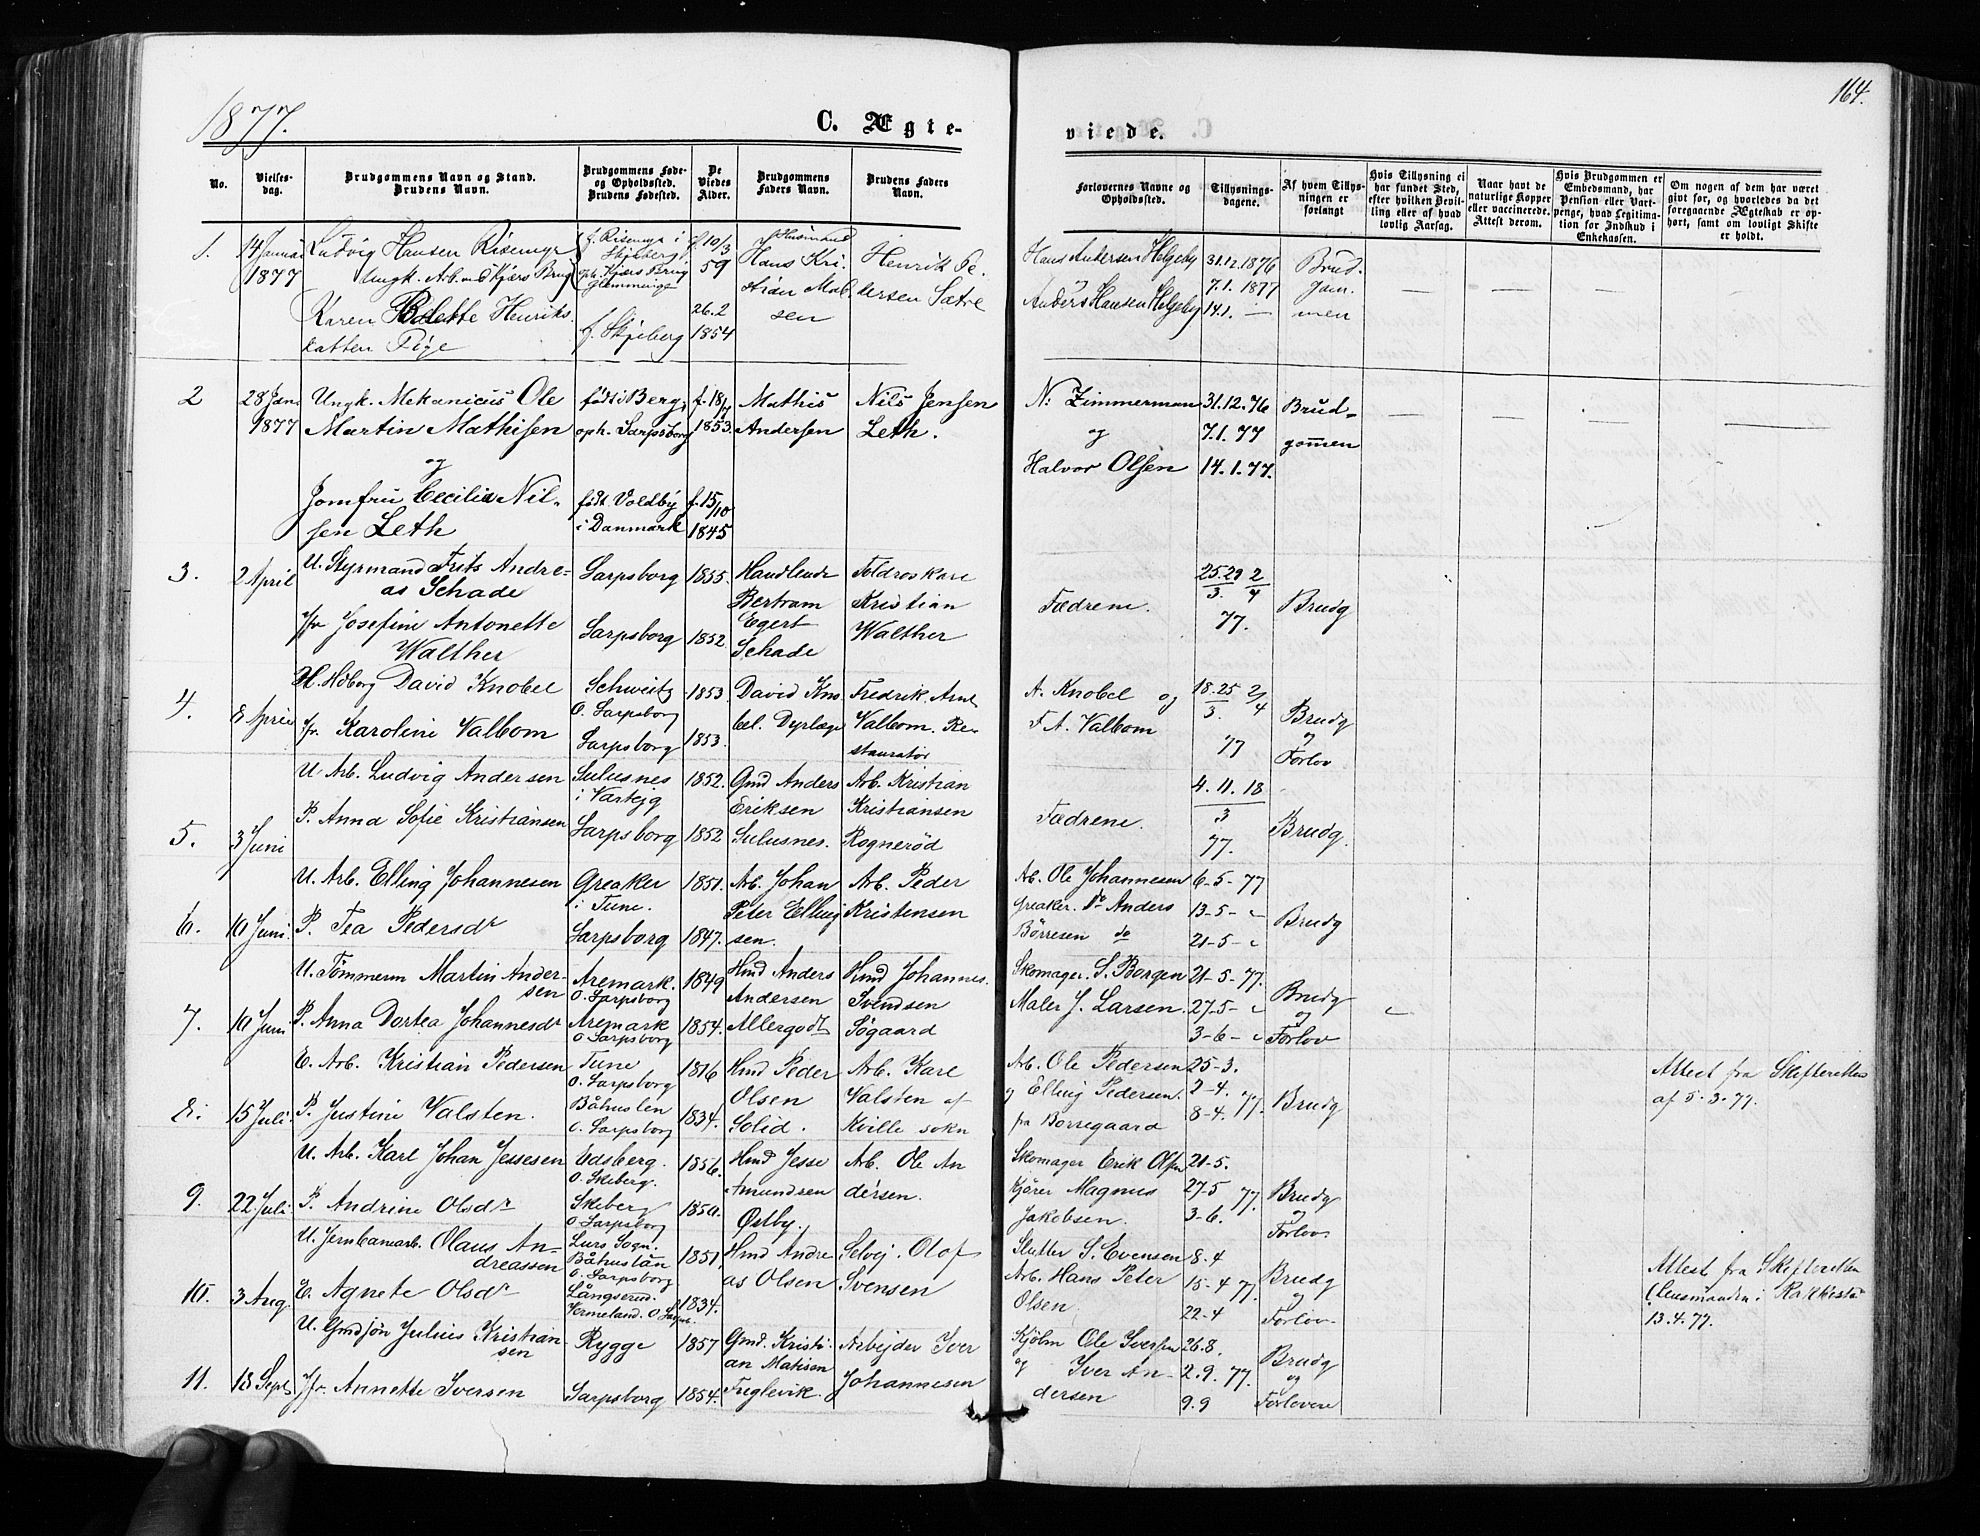 1877.
164.
C. Ægte-
viede.
No.
Vielses-
dag.
Brudgommens Navn og Stand.
Brudens Navn.
Brudgommens Føde-
og Opholdssted.
Brudens Fødested.
De
Viedes
Alder.
Brudgommens
Faders Navn.
Brudens Faders
Navn.
Forlovernes Navne og
Opholdssted.
Tillysnings-
dagene.
Af hvem Tillys-
ningen er
forlangt
Hvis Tillysning ei
har fundet Sted,
efter hvilken Bevil-
ling eller af hvad
lovlig Aarsag.
Naar havt de
naturlige Kopper
eller vaccinerede.
Attest derom.
Hvis Brudgommen er
Embedsmand, har
Pension eller Vart-
penge, hvad Legitima-
tion for Indskud i
Enkekassen.
Om nogen af dem har været
gift før, og hvorledes da det
foregaaende Ægteskab er op-
hørt, samt om lovligt Skifte
er holdt.
1.
1877
Ludvig Hansen
f.
Skjeberg
f 10/3
59
Husmand
Hans Kri.
sen
Henrik Pe.
dersen Sætre
Karen Bolette Henriks.
datter Pige
f. Skjeberg
26.2
1854
Hans Andersen Helgeby
Anders Hansen Helgeby
31.12.1876
7.1.1877
14.1. —
Brud.
gom.
men
2
28 Jan.
1877
Ungk. Mekanicus Ole
Martin Mathisen
og
Jomfru Cecilia Nil-
sen Leth
født i Berg,
oph. Sarpsborg
født Voldby
i Danmark
f. 18/7
1853.
f. 15/10
1845
Mathis
Andersen
Nils Jensen
Leth.
N: Zimmerman
og
Halvor Olsen
31.12.76
7.1.77
14.1.77.
Brud-
gommen
3.
2 April
U. Styrmand Frits Andre-
as Schade
Jfr Josefine Antonette
Walther
Sarpsborg
Sarpsborg
1855.
1852
Bertram
Egert
Schade
Kristian
Walther
Fædrene.
25.29 2
3. 4
77.
Brudg
4.
8 April
David Knobel
Jfr. Karoline Valbom
Schweitz
O. Sarpsborg
Sarpsborg
1853
1853.
David Kno
bel. Dyrlæge
Fredrik Arnt
Valbom. Re-
stauratør
A. Knobel og
F. A. Valbom
18.25 2/4
3.
77
Brudg
og
Forlov
5.
3 Juni
U Arb. Ludvig Andersen
P. Anna Sofie Kristiansen
i Varteig
Sarpsborg
1852.
1852
Gmd Anders
Eriksen
Arb. Kristian
Kristiansen
Rognerød
Fædrene.
4. 11. 18
3
77.
Brudg.
6.
10 Juni.
U. Arb. Elling Johannesen
P. Tea Pedersdr
Greaker
i Tune.
Sarpsborg
1851.
1847.
Arb. Johan
Peter Elling
sen.
Arb. Peder
Kristensen
Arb. Ole Johannesen
Greaker. Do Anders
Børresen do
6-5-77
13-5-
21-5-
Brudg
7.
10 Juni
U. Tømmerm Martin Ander-
sen
P. Anna Dortea Johannesdr
Aremark.
O. Sarpsborg
Aremark
O. Sarpsborg
1849
1854.
Hmd Anders
Andersen
Hmd Johannes.
Svendsen
Søgaard
Skomager. S. Borgen
Maler J. Larsen.
21-5-77.
27-5-
3-6-
Brudg
og
Forlov
8.
15 Juli.
E. Arb. Kristian Pedersen
P. Justine Valsten.
Tune
O. Sarpsborg
Båhuslen
O. Sarpsborg
1816
1834.
Hmd Peder
Olsen
Solid.
Arb. Karl
Valsten af
Kville sokn
Arb. Ole Pedersen
og Elling Pedersen.
fra Borregaard
25-3.
2-4.
8-4. 77.
Brudg
Attest fra Skifteretten
af 5.3.77.
9.
22 Juli.
U. Arb. Karl Johan Jessesen
P. Andrine Olsdr
Edsberg.
O. Skeberg.
Skeberg
O. Sarpsborg
1856.
1850.
Hmd Jesse
Amundsen
Østby.
Arb. Ole An
dersen.
Skomager Erik Olsen
Kjører Magnus
Jakobsen.
21-5.
27-5 77.
3-6.
Brudg
og
Forlov
10.
3 Aug.
U. Jernbanearb. Olaus An-
dreassen
E. Agnete Olsdr
Lurs Sogn.
Båhuslän
O. Sarpsborg
Långserud.
Vermeland.
1851.
1834.
Hmd Andre
as Olsen
Selvej. Olof
Svensen
Slutter S. Evensen
Arb. Hans Peter
Olsen
8-4
15-4 77.
22-4
Brudg
og
Forlov
Attest fra Skifteretten
(Lensmanden i Rakkestad
13.4.77.
11.
18 Sept
U. Gmdsøn Julius Kristian-
sen
Jfr. Annette Iversen
Rygge
Sarpsborg
1857
1854.
Gmd. Kristi-
an Matisen
Arbejder Iver
Johannesen
Kjølm Ole Iversen
og Iver An-
dersen
26.8.
2.9. 77.
9.9
Brudg
og
Forlovere